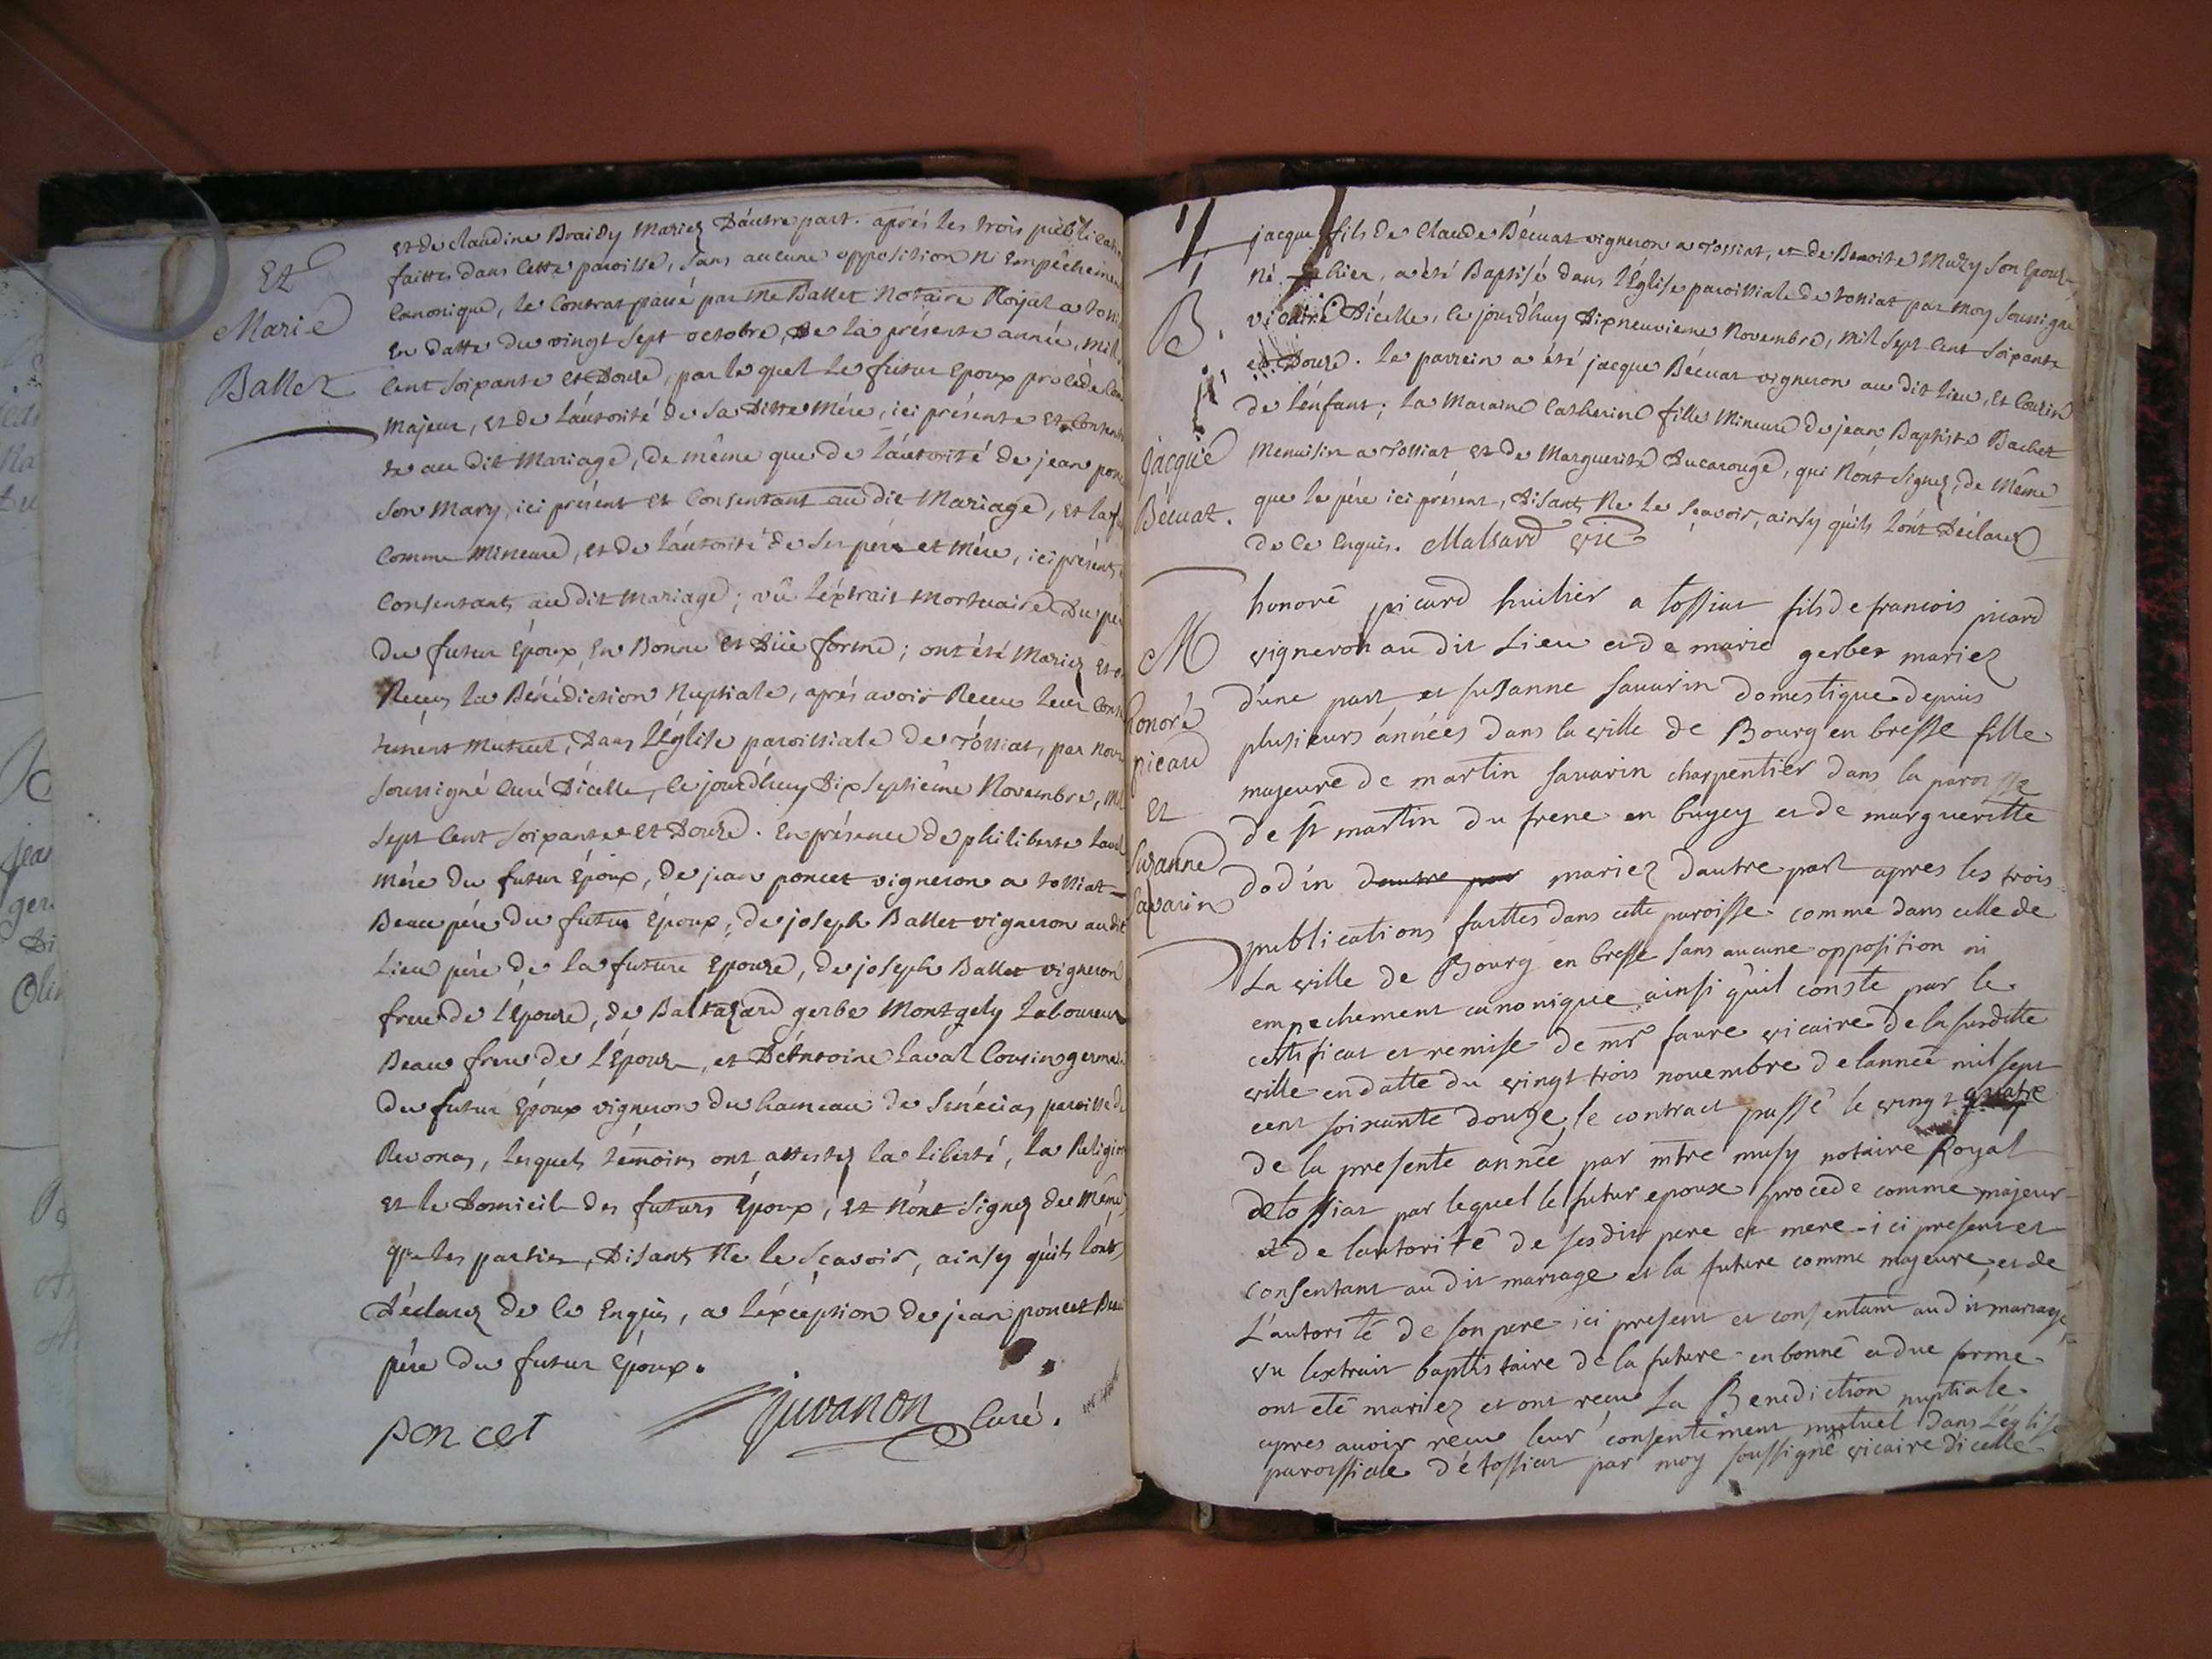 Et
Marie
Ballet
Et de claudine Braidy Mariez D'autre part. aprés les trois publicati
faittes dans Cette paroisse, sans aucune opposition ni Empêcheme
Canonique, le Contrat passé par Me Ballet Notaire Royal a tossi
En datte du vingt sept octobre, de la présente année, mil
Cent soixante et Douze, par le quel le futur Epoux procède
Majeur, et de l'autorité de sa ditte Mére, ici présente et Consent
te au dit Mariage, de même que de l'autorité de jean pon
son Mary, ici présent et Consentant au dit Mariage, et la
Comme Mineure, et de l'autorité de ses pére et Mére, ici présents
Consentants au dit Mariage; vû l'éxtrait Mortuaire Du pe
du futur Époux, En Bonne et Düe forme; ont été Mariez et o
Reçus la Bénédiction Nuptiale, aprés avoir Receu leur Cons
tement Mutuel, dans l'Église paroissiale de Tossiat, par nou
soussigné Curé D'icelle, le jourd'huy Dix septiéme Novembre, Mil
sept Cent soixante et Douze. En présence de philiberte Laval
Mére du futur Époux, de jean poncet vigneron a tossiat
Beau pére du futur Époux, de joseph Ballet vigneron au dit
Lieu pére de la future Epouze, de joseph Ballet vigneron
frere de l'Épouze, de Baltazard gerbe Montgely Laboureur
Beau frere de l'Épouze, et D'Antoine Laval Cousin germ
du futur Époux vigneron du hameau de Sénécia, paroisse d
Revonas, lesquels témoins ont attestez la liberté, la Religion
et le Domicil des futurs Époux, et N'ont signez de Même
que les parties, Disants Ne le Sçavoir, ainsy qu'ils l'ont
Déclarez de ce Enquis, a l'éxception de jean poncet Beau
pére du futur Époux.
poncet juvanon Curé.
B.
jacque
Becuat.
jacque fils de Claude Bécuat vigneron a Tossiat, et de Benoite Muzy son Epouze,
né hier, a été Baptisé dans l'Église paroissiale de tossiat par Moy soussigné
vicaire D'icelle, le jourd'huy Dix neuvieme Novembre, Mil sept Cent soixante
et Douze. Le parrein a été jacque Bécuat vigneron au dit lieu, Et Couzin
de l'énfant; la Maraine Catherine fille Mineure de jean Baptiste Bachet
Menuisier a Tossiat et de Marguerite Ducarouge, qui N'ont signez, de Même
que le pére ici présent, disants Ne le sçavoir, ainsy qu'ils l'ont Déclarez
de ce Enquis. Malsard vic
M
honoré
picard
Et
Suzanne
Savarin
honoré picard huilier a tossiat fils de francois picard
vigneron au dit Lieu et de marie gerbet mariez
d'une part et suzanne savarin domestique depuis
plusieurs années dans la ville de Bourg en bresse fille
majeure de martin savarin charpentier dans la paroisse
de st martin du frene en bugey et de margueritte
dodin dautre par mariez dautre part apres les trois
publications faittes dans cette paroisse comme dans celle de
La ville de Bourg en bresse sans aucune opposition ni
empechement canonique ainsi qu'il conste par le
certificat et remise de mr faure vicaire de la susditte
ville en datte du vingt trois novembre de lannée mil sept
cent soixante douze, le contract passé le vingt quatre
de la presente année par mtre musy notaire Royal
de tossiat par lequel le futur epoux procede comme majeur
et de lautorité de ses dits pere et mere ici present et
consentant au dit mariage et la future comme majeure, et de
L'autorité de son pere ici present et consentant au dit mariage,
vu lextrait baptistaire de la future en bonne et due forme
ont été mariez et ont recu La Benediction nuptiale
apres avoir recu leur consentement mutuel dans L'église
paroissiale de tossiat par moy soussigné vicaire d'icelle